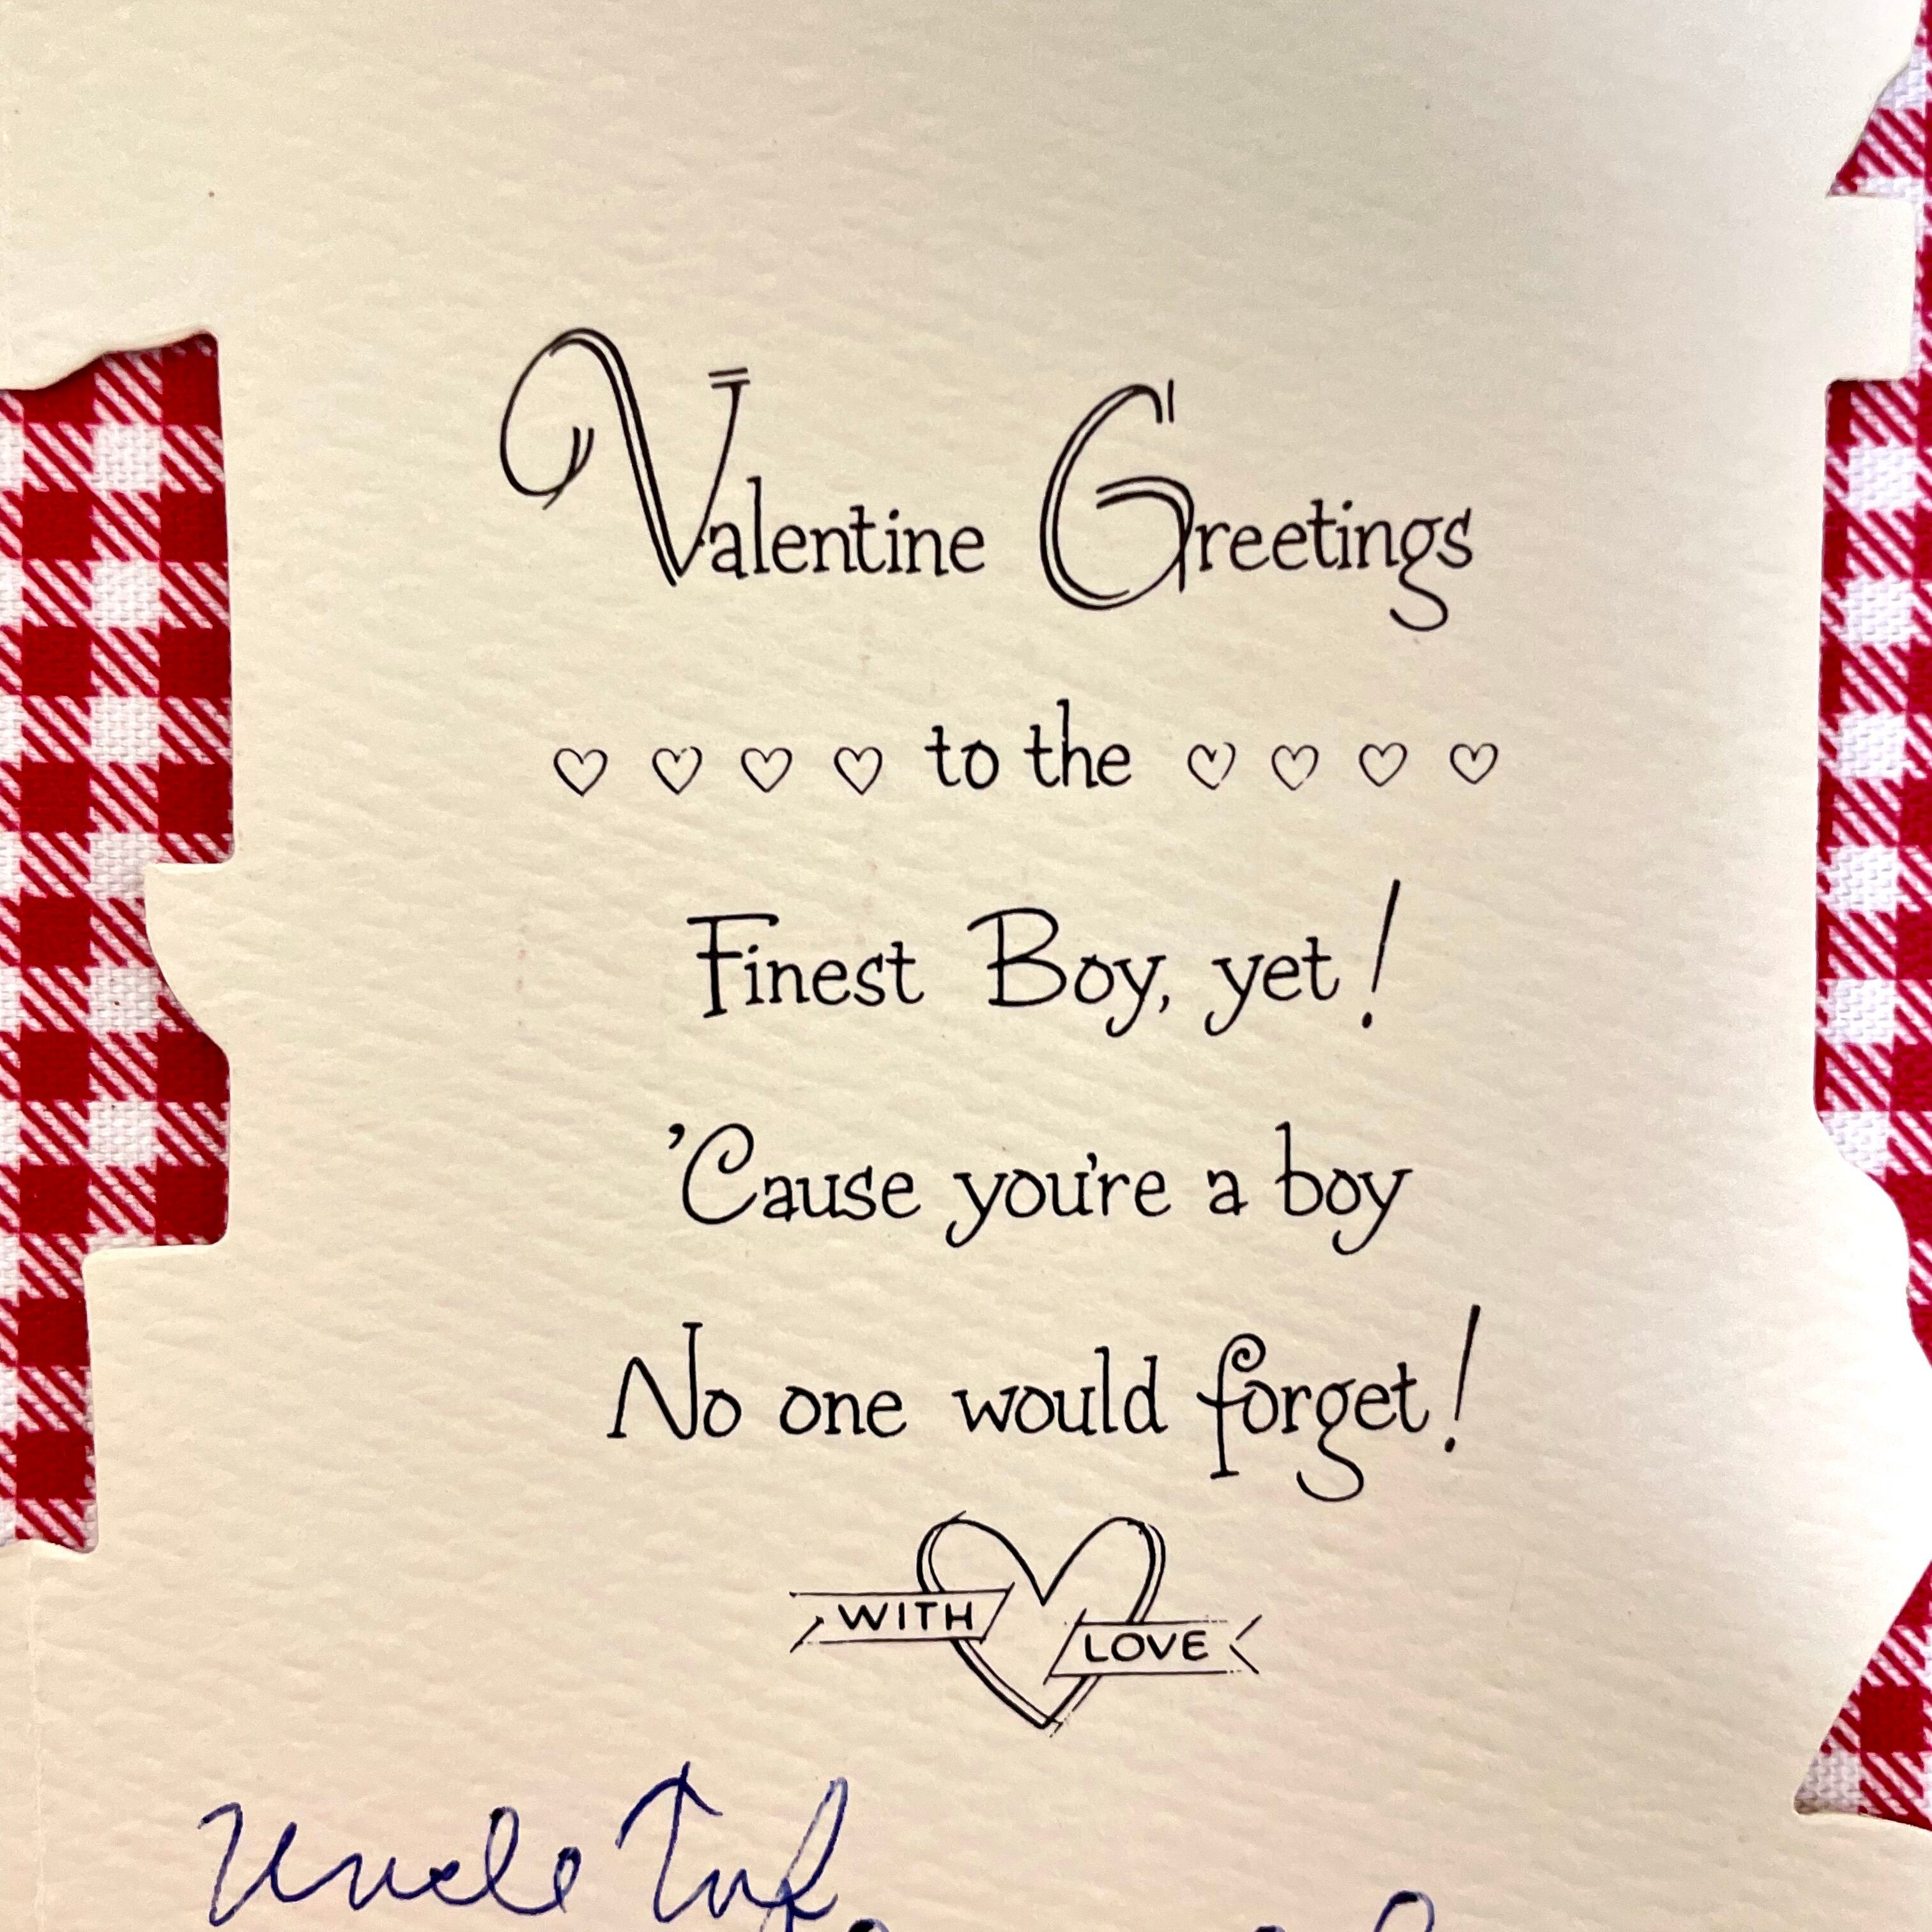 Valentine Greetings
to the
Finest Boy, yet!
'Cause you're a boy
No one would forget!
WITH LOVE
Uncle